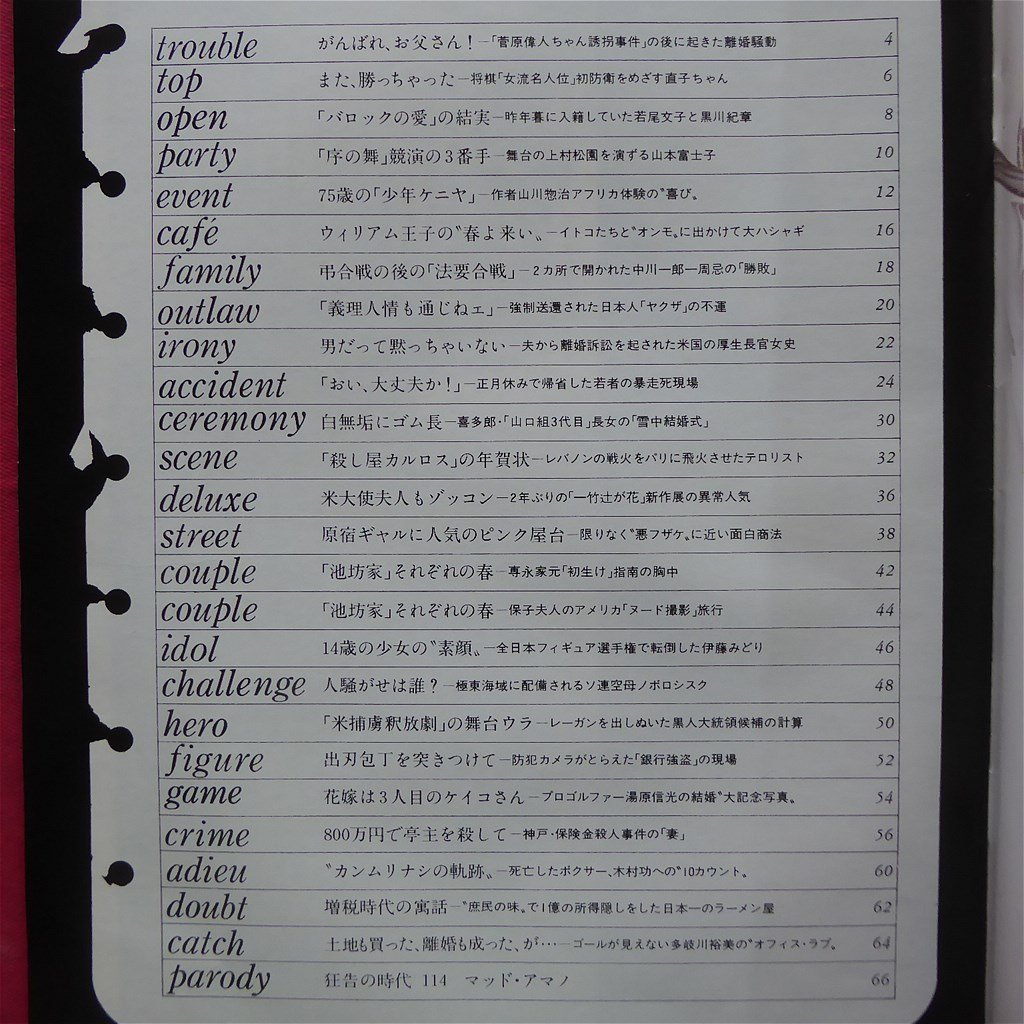 trouble がんばれ、お父さん！—「菅原偉人ちゃん誘拐事件」の後に起きた離婚騒動 4
top また、勝っちゃった—将棋「女流名人位」初防衛をめざす直子ちゃん 6
open 「バロックの愛」の結実—昨年暮に入籍していた若尾文子と黒川紀章 8
party 「序の舞」競演の3番手—舞台の上村松園を演ずる山本富士子 10
event 75歳の「少年ケニヤ」—作者山川惣治アフリカ体験の〝喜び〟 12
café ウィリアム王子の〝春よ来い〟—イトコたちと〝オンモ〟に出かけて大ハシャギ 16
family 弔合戦の後の「法要合戦」—2カ所で開かれた中川一郎一周忌の「勝敗」 18
outlaw 「義理人情も通じねェ」—強制送還された日本人「ヤクザ」の不運 20
irony 男だって黙っちゃいない—夫から離婚訴訟を起された米国の厚生長官女史 22
accident 「おい、大丈夫か！」—正月休みで帰省した若者の暴走死現場 24
ceremony 白無垢にゴム長—喜多郎・「山口組3代目」長女の「雪中結婚式」 30
scene 「殺し屋カルロス」の年賀状—レバノンの戦火をパリに飛火させたテロリスト 32
deluxe 米大使夫人もゾッコン—2年ぶりの「一竹辻が花」新作展の異常人気 36
street 原宿ギャルに人気のピンク屋台—限りなく〝悪フザケ〟に近い面白商法 38
couple 「池坊家」それぞれの春—専永家元「初生け」指南の胸中 42
couple 「池坊家」それぞれの春—保子夫人のアメリカ「ヌード撮影」旅行 44
idol 14歳の少女の〝素顔〟—全日本フィギュア選手権で転倒した伊藤みどり 46
challenge 人騒がせは誰？—極東海域に配備されるソ連空母ノボロシスク 48
hero 「米捕虜釈放劇」の舞台ウラ—レーガンを出しぬいた黒人大統領候補の計算 50
figure 出刃包丁を突きつけて—防犯カメラがとらえた「銀行強盗」の現場 52
game 花嫁は3人目のケイコさん—プロゴルファー湯原信光の結婚〝大記念写真〟 54
crime 800万円で亭主を殺して—神戸・保険金殺人事件の「妻」 56
adieu 〝カンムリナシの軌跡〟—死亡したボクサー、木村功への〝10カウント〟 60
doubt 増税時代の寓話—〝庶民の味〟で1億の所得隠しをした日本一のラーメン屋 62
catch 土地も買った、離婚も成った、が…—ゴールが見えない多岐川裕美の〝オフィス・ラブ〟 64
parody 狂告の時代 114 マッド・アマノ 66